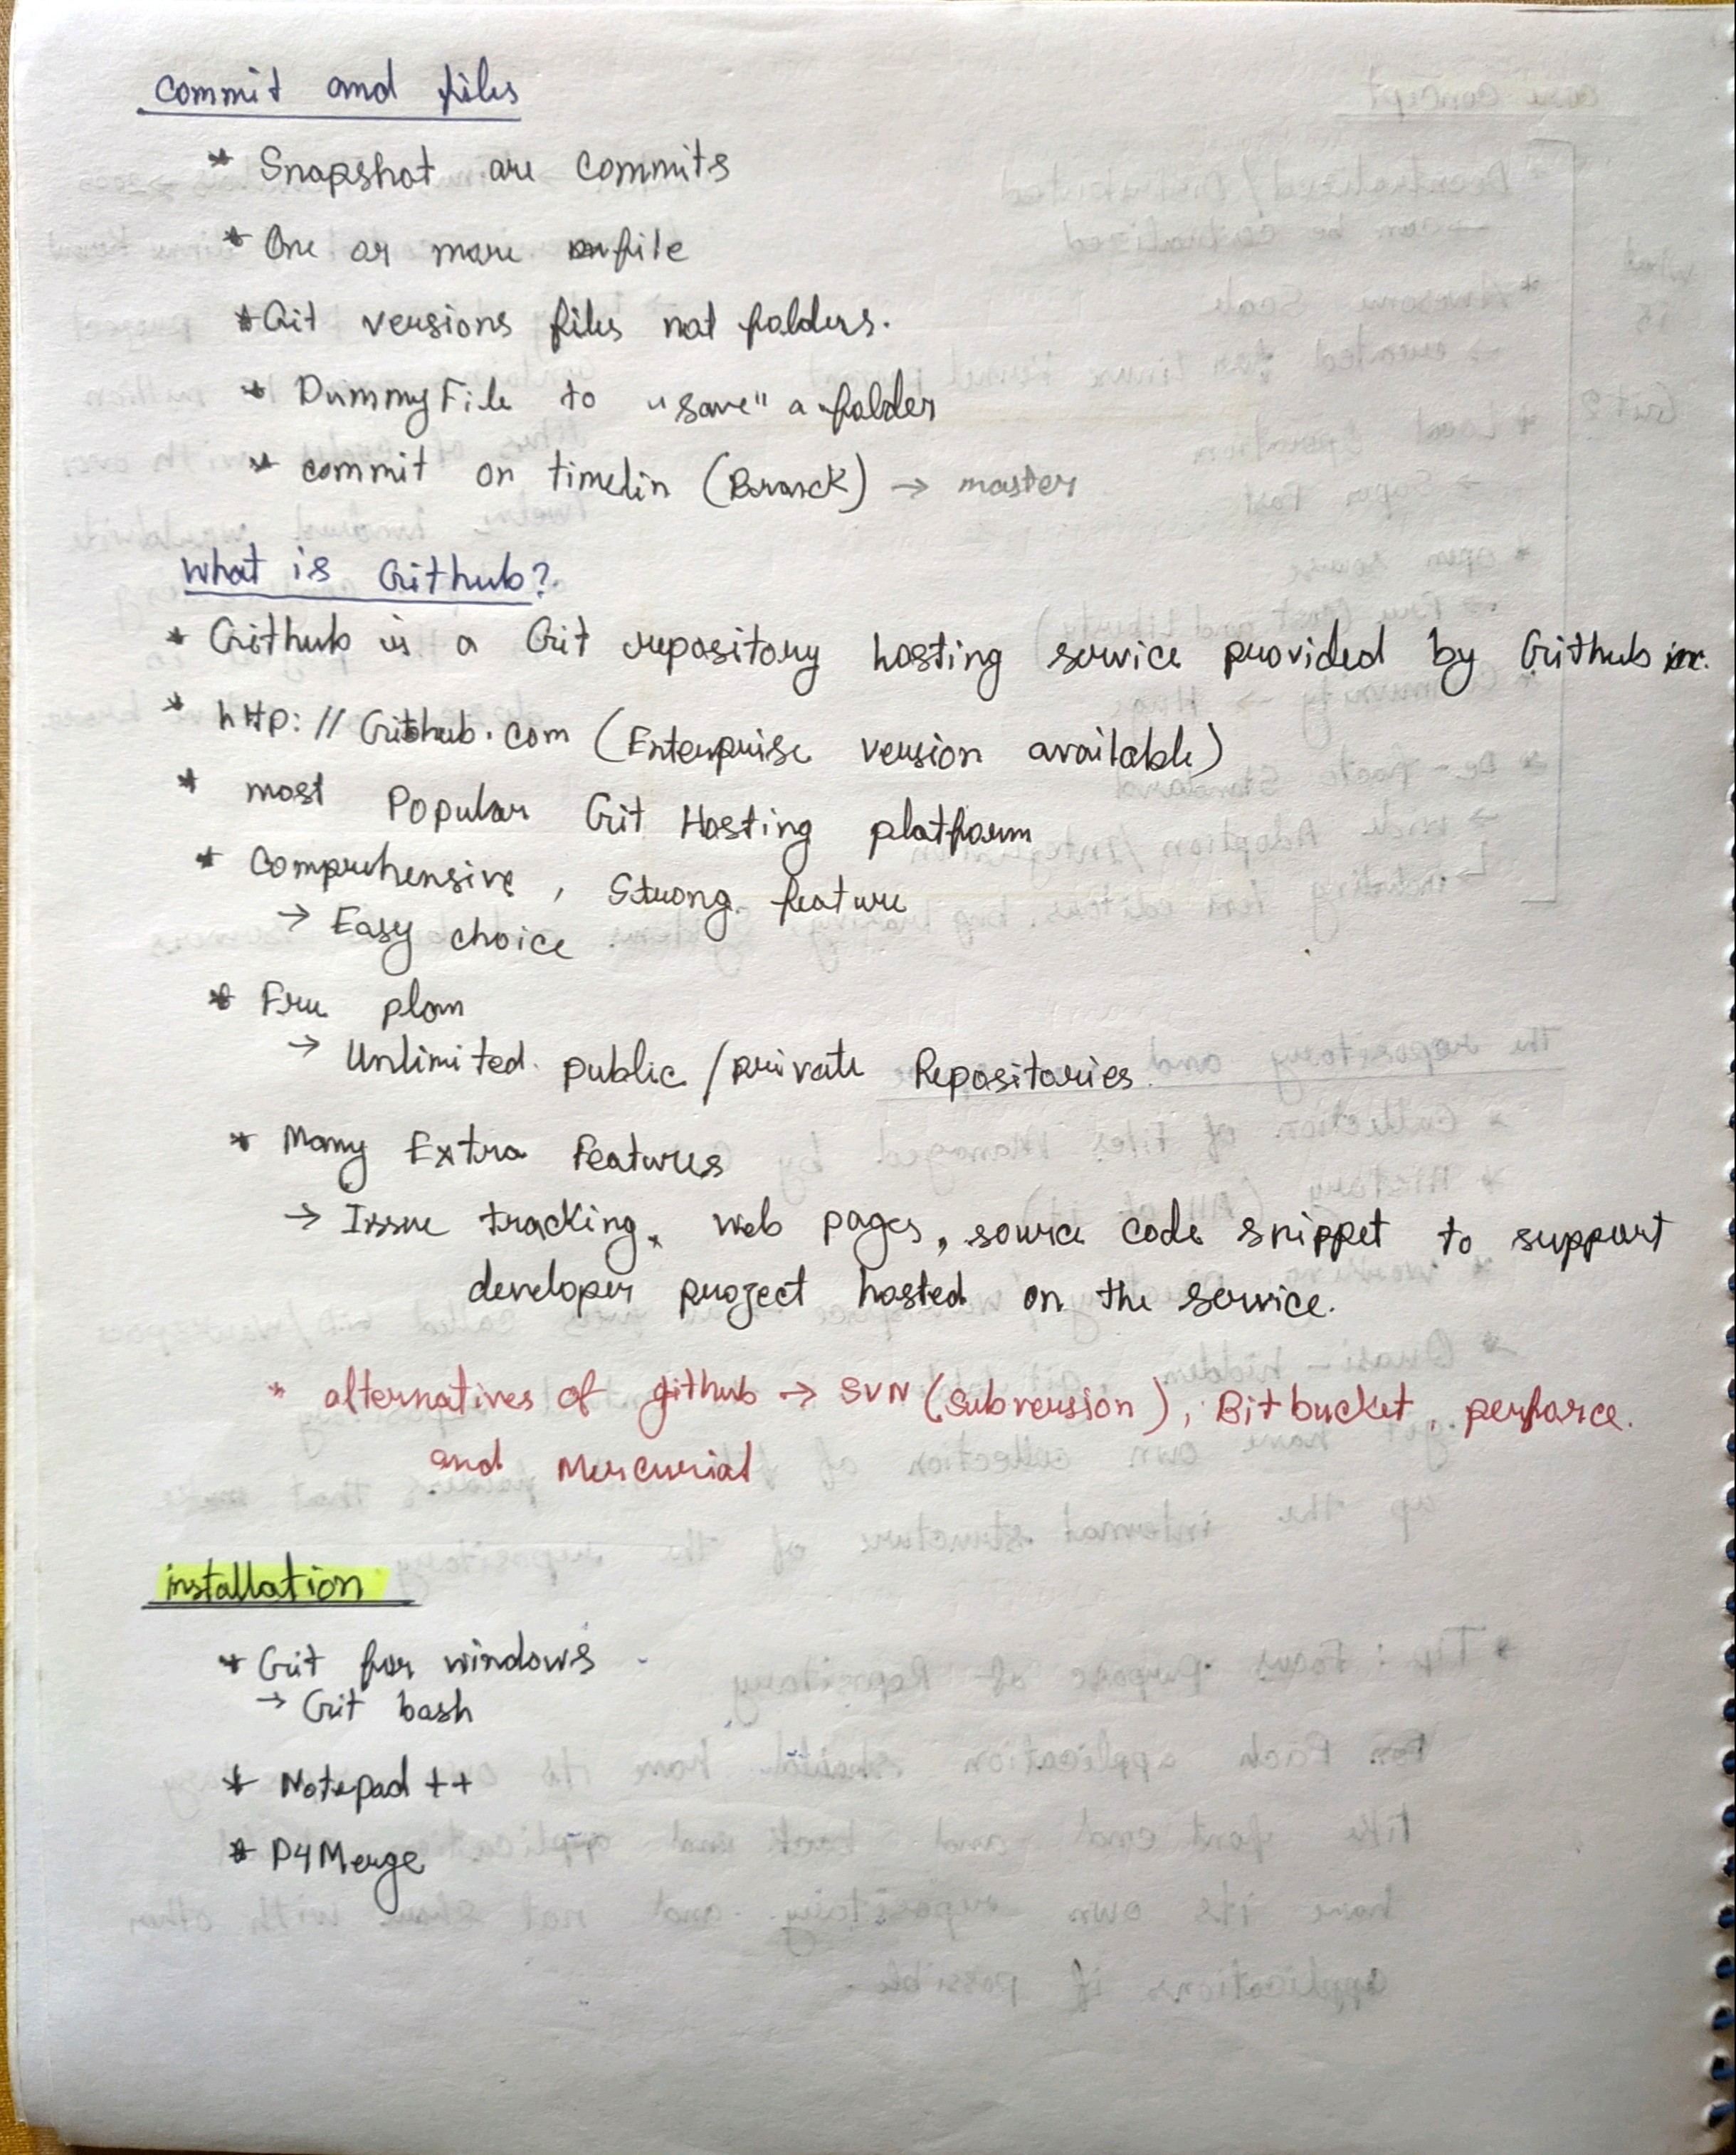 commit and files
* Snapshot are commits
* One or more file
* Git versions files not folders.
* Dummy File to "save" a folder
* commit on timelin (Branck) → master
What is Github?
* Github is a Git repository hosting service provided by Github inc.
* http://Github.com (Enterprise version available)
* most Popular Git Hosting platform
* Comprehensive, Strong feature
→ Easy choice
* Free plan
→ Unlimited public / private Repositories
* Many Extra Features
→ Issue tracking, web pages, source code snippet to support
developer project hosted on the service.
* alternatives of github → SVN (Subversion), Bitbucket, perforce.
and Mercurial
installation
* Git for windows
→ Git bash
* Notepad ++
* P4Merge